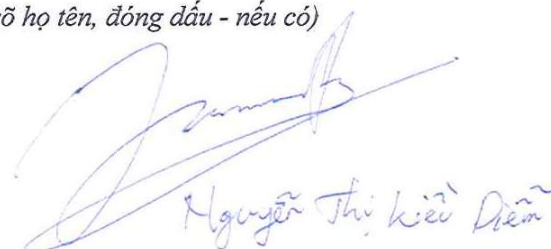 õ họ tên, đóng dấu - nếu có)
Nguyễn Thị Kiều Diễm